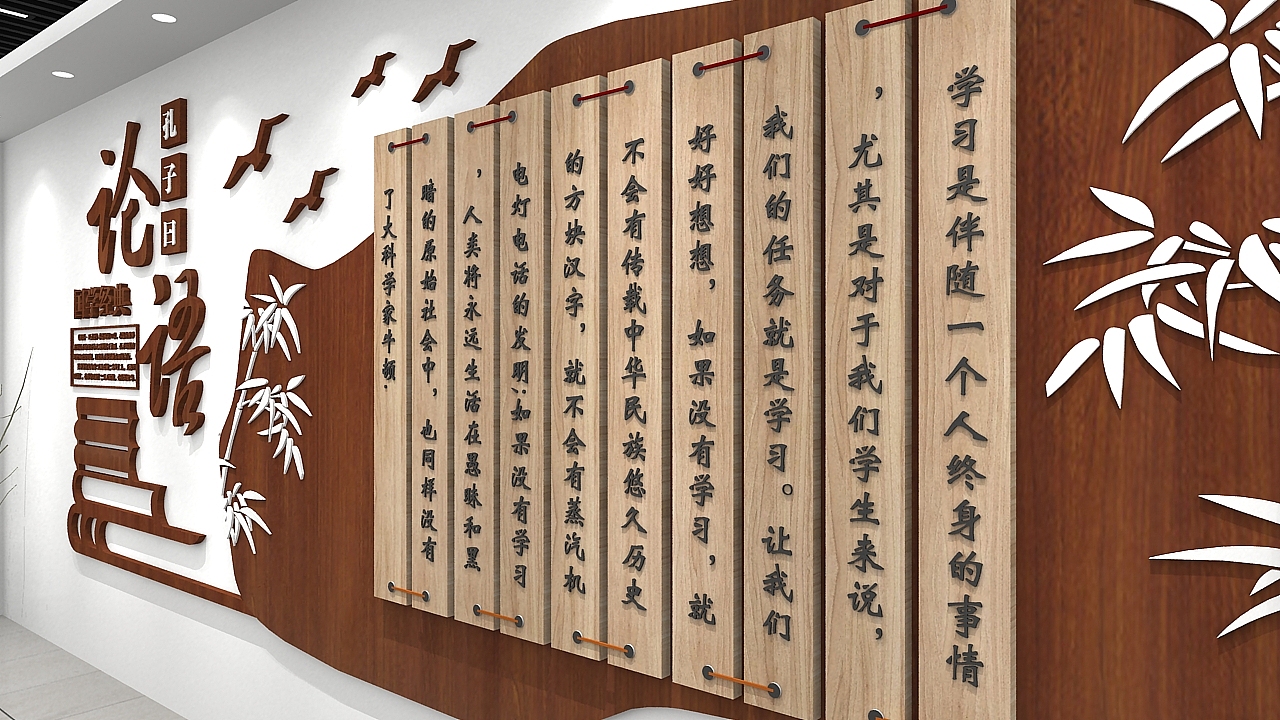 学习是伴随一个人终身的事情
，尤其是对于我们学生来说，
我们的任务就是学习。让我们
好好想想，如果没有学习，就
不会有传载中华民族悠久历史
的方块汉字，就不会有蒸汽机
电灯电话的发明；如果没有学习
，人类将永远生活在愚昧和黑
暗的原始社会中，也同样没有
了大科学家牛顿.
孔子曰
论语
国学经典